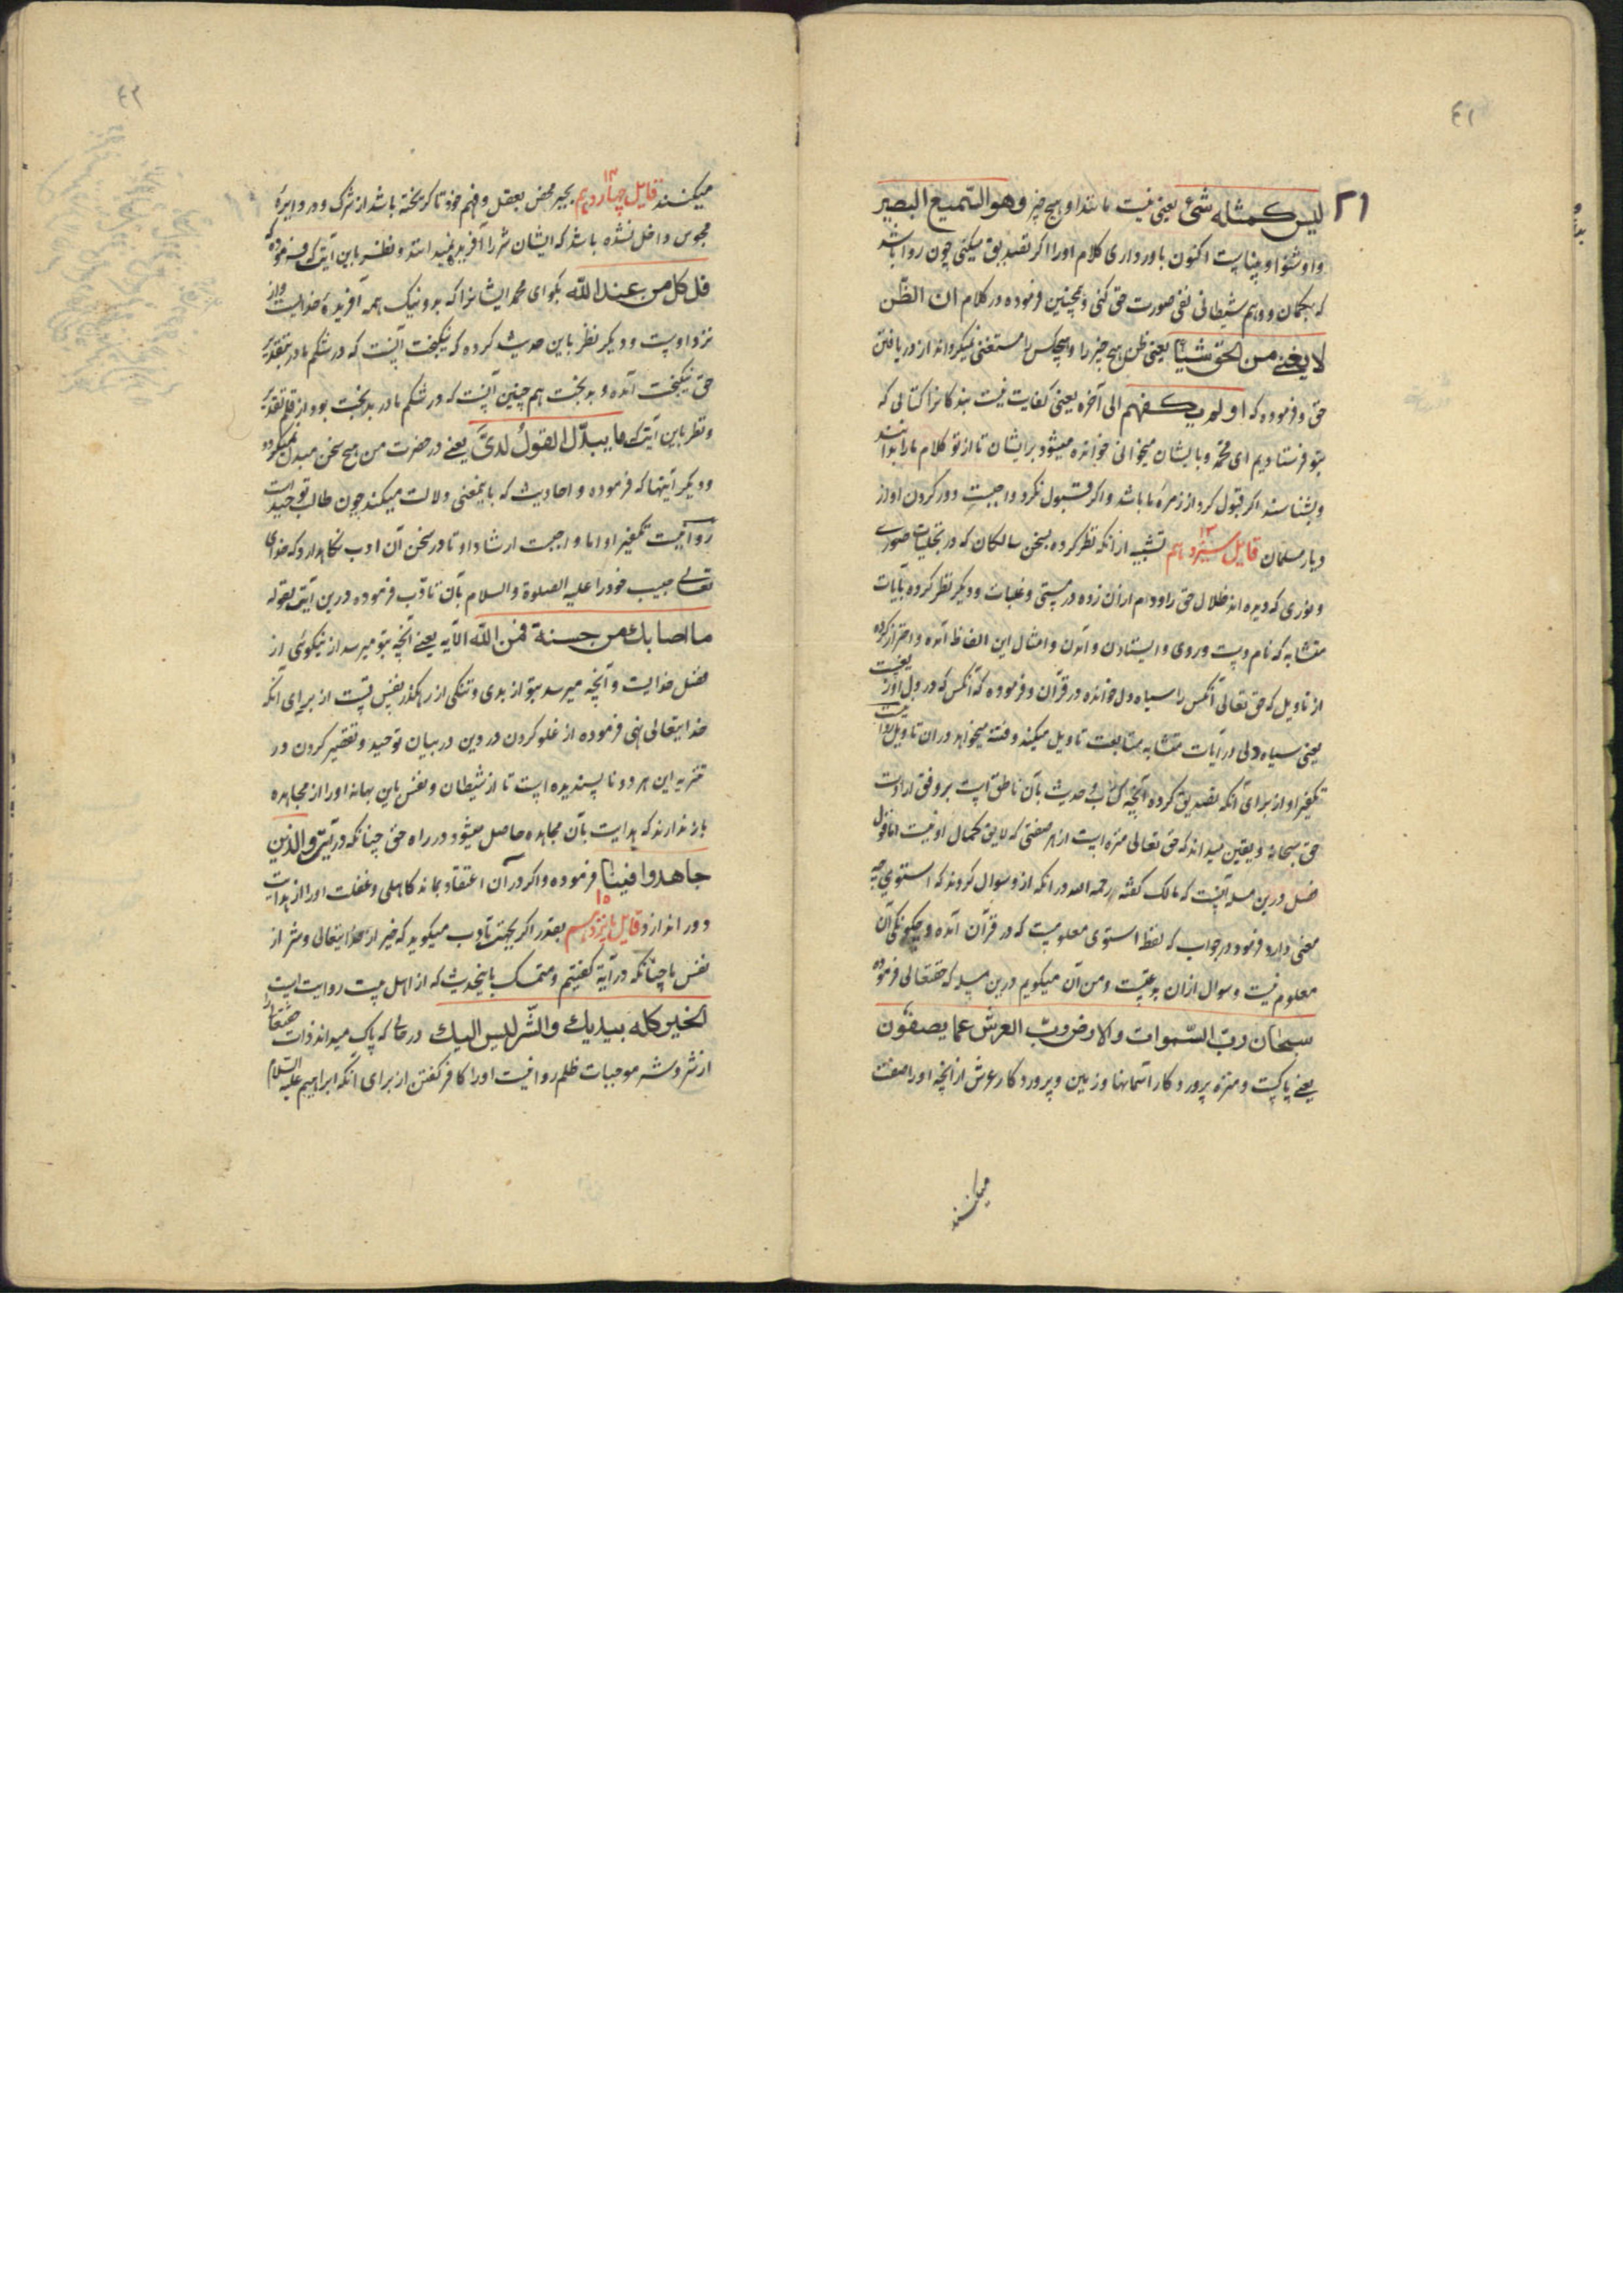 ٤١
٢١
لیس کمثله شیء یعنی نیست مانند او هیچ چیز وهو السمیع البصیر
واو شنوا وبیناست اکنون باور داری کلام اورا اکر تصدیق میکنی چون روا باشد
که بکمان ووهم شیطانی نفی صورت حق کنی وهمچنین فرموده در کلام ان الظن
لا یغنی من الحق شیئا یعنی ظن هیچ چیز را وهیچکس را مستغنی نمیکرداند از دریافتن
حق وفرموده که اولم یکفهم الی آخره یعنی کفایت نیست بندکانرا کتابی که
بتو فرستادیم ای محمد وبایشان میخوانی خوانده میشود برایشان تا از تو کلام مارا بدانند
وبشناسند اکر قبول کرد از زمرهٔ ما باشد واکر قبول نکرد واجبست دور کردن او از
دیار مسلمان قایل سیزدهم ١٣ تشبیه از آنکه نظر کرده بسخن سالکان که در تجلیات صوری
ونوری که دیده اند ظلال حق را ودم از آن زده در مستی وغلبات ودیکر نظر کرده بآیات
متشابه که نام دست وروی وایستادن وآمدن وامثال این الفاظ آمده واحتراز کرده
از تاویل که حق تعالی آنکس را سیاه دل خوانده در قرآن وفرموده که آنکس که در دل او زیغست
یعنی سیاه دلی در آیات متشابه متابعت تاویل میکند وفتنه میخواهد در آن تاویل روا نیست
تکفیر او از برای آنکه تصدیق کرده آنچه کتاب وحدیث بآن ناطق است بر وفق ارادت
حق سبحانه ویقین میداند که حق تعالی منزه است از هر صفتی که لایق کمال او نیست اما قول
فصل درین مسئله آنست که مالک کفته رحمه الله در آنکه از وسوال کردند که استوی چه
معنی دارد فرمود در جواب که لفظ استوی معلومست که در قرآن آمده وچکونکی آن
معلوم نیست وسوال از آن بدعتست ومن آن میکویم درین مسئله که حقتعالی فرموده
سبحان رب السموات والارض رب العرش عما یصفون
یعنی پاکست ومنزه پروردکار آسمانها وزمین وپروردکار عرش از آنچه اورا صفت
میکنند
٤٢
میکنند قایل چهاردهم ١٤ بجبر محض بعقل وفهم خود تا کریخته باشد از شرک ودر دایرهٔ
مجوس داخل نشده باشد که ایشان شر را آفریدهٔ نمیدانند ونظر باین آیت که فرموده که
قل کل من عند الله بکو ای محمد ایشانرا که بد ونیک همه آفریدهٔ خدایست واز
نزد اوست ودیکر نظر باین حدیث کرده که نیکبخت آنست که در شکم مادر بتقدیر
حق نیکبخت آمده وبدبخت هم چنین آنست که در شکم مادر بدبخت بود از قلم تقدیر
ونظر باین آیت که ما یبدل القول لدی یعنی در حضرت من هیچ سخن مبدل نمیکردد
ودیکر آیتها که فرموده واحادیث که باینمعنی دلالت میکند چون طالب توحید است
روا نیست تکفیر او اما واجبست ارشاد او تا در سخن آن ادب نکاهدارد که خدای
تعالی حبیب خودرا علیه الصلوة والسلام بآن تادّب فرموده درین آیت بقوله
ما اصابک من حسنة فمن الله الآیه یعنی آنچه بتو میرسد از نیکوئی از
فضل خدایست وآنچه میرسد بتو از بدی وتنکی از رهکذر نفس تست از برای آنکه
خدایتعالی نهی فرموده از غلو کردن در دین در بیان توحید وتقصیر کردن در
تنزیه این هر دو ناپسندیده است تا از شیطان ونفس باین بهانه اورا از مجاهده
باز ندارند که هدایت بآن مجاهده حاصل میشود در راه حق چنانکه در آیت والذین
جاهدوا فینا فرموده واکر در آن اعتقاد بماند کاهلی وغفلت اورا از هدایت
دور اندازد قایل پانزدهم ١٥ بقدر اکر بجهت تادب میکوید که خیر از خدایتعالی وشر از
نفس ما چنانکه در آیة کفتیم ومتمسک باینحدیث که از اهل بیت روایت است
الخیر کله بیدیک والشر لیس الیک در حالی که پاک میداند ذات حقتعالی را
از شر وشر موجبات ظلم روا نیست اورا کافر کفتن از برای آنکه ابراهیم علیه السلام